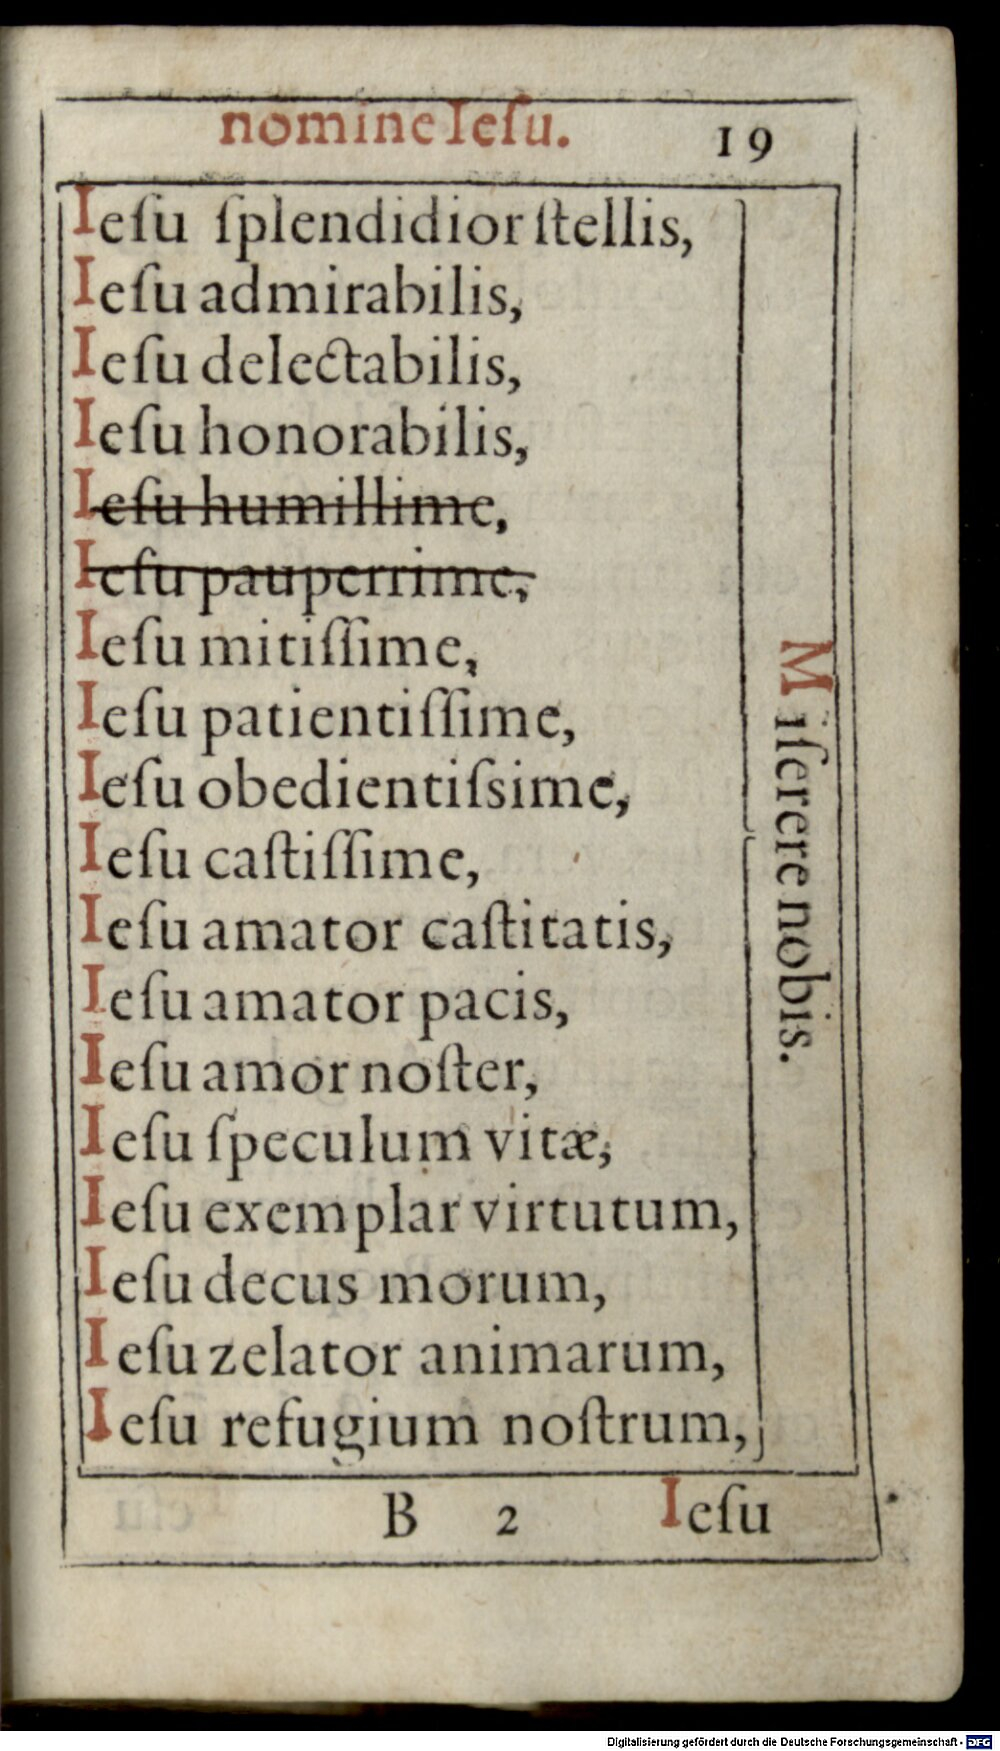 nomine Ieſu.
19
Ieſu ſplendidior ſtellis,
Ieſu admirabilis,
Ieſu delectabilis,
Ieſu honorabilis,
Ieſu humillime,
Ieſu pauperrime,
Ieſu mitiſſime,
Ieſu patientiſſime,
Ieſu obedientiſsime,
Ieſu caſtiſſime,
Ieſu amator caſtitatis,
Ieſu amator pacis,
Ieſu amor noſter,
Ieſu ſpeculum vitæ,
Ieſu exemplar virtutum,
Ieſu decus morum,
Ieſu zelator animarum,
Ieſu refugium noſtrum,
Miſerere nobis.
B 2
Ieſu
Digitalisierung gefördert durch die Deutsche Forschungsgemeinschaft - DFG